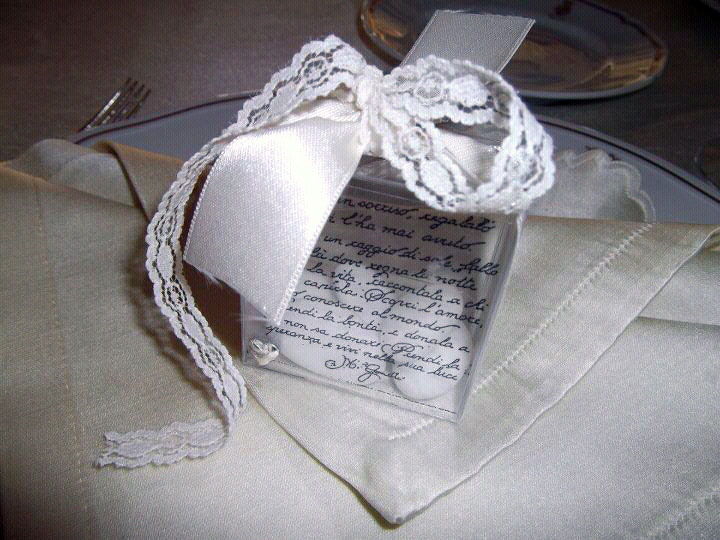 un sorriso, regalato
l'ha mai avuto
un raggio di sole, fallo
là dove regna la notte
la vita, raccontala a chi
carirla. Scopri l'amore,
conoscere al mondo
endi la bontà, e donala a
non sa donare. Prendi la
peranza, e vivi nella sua luce